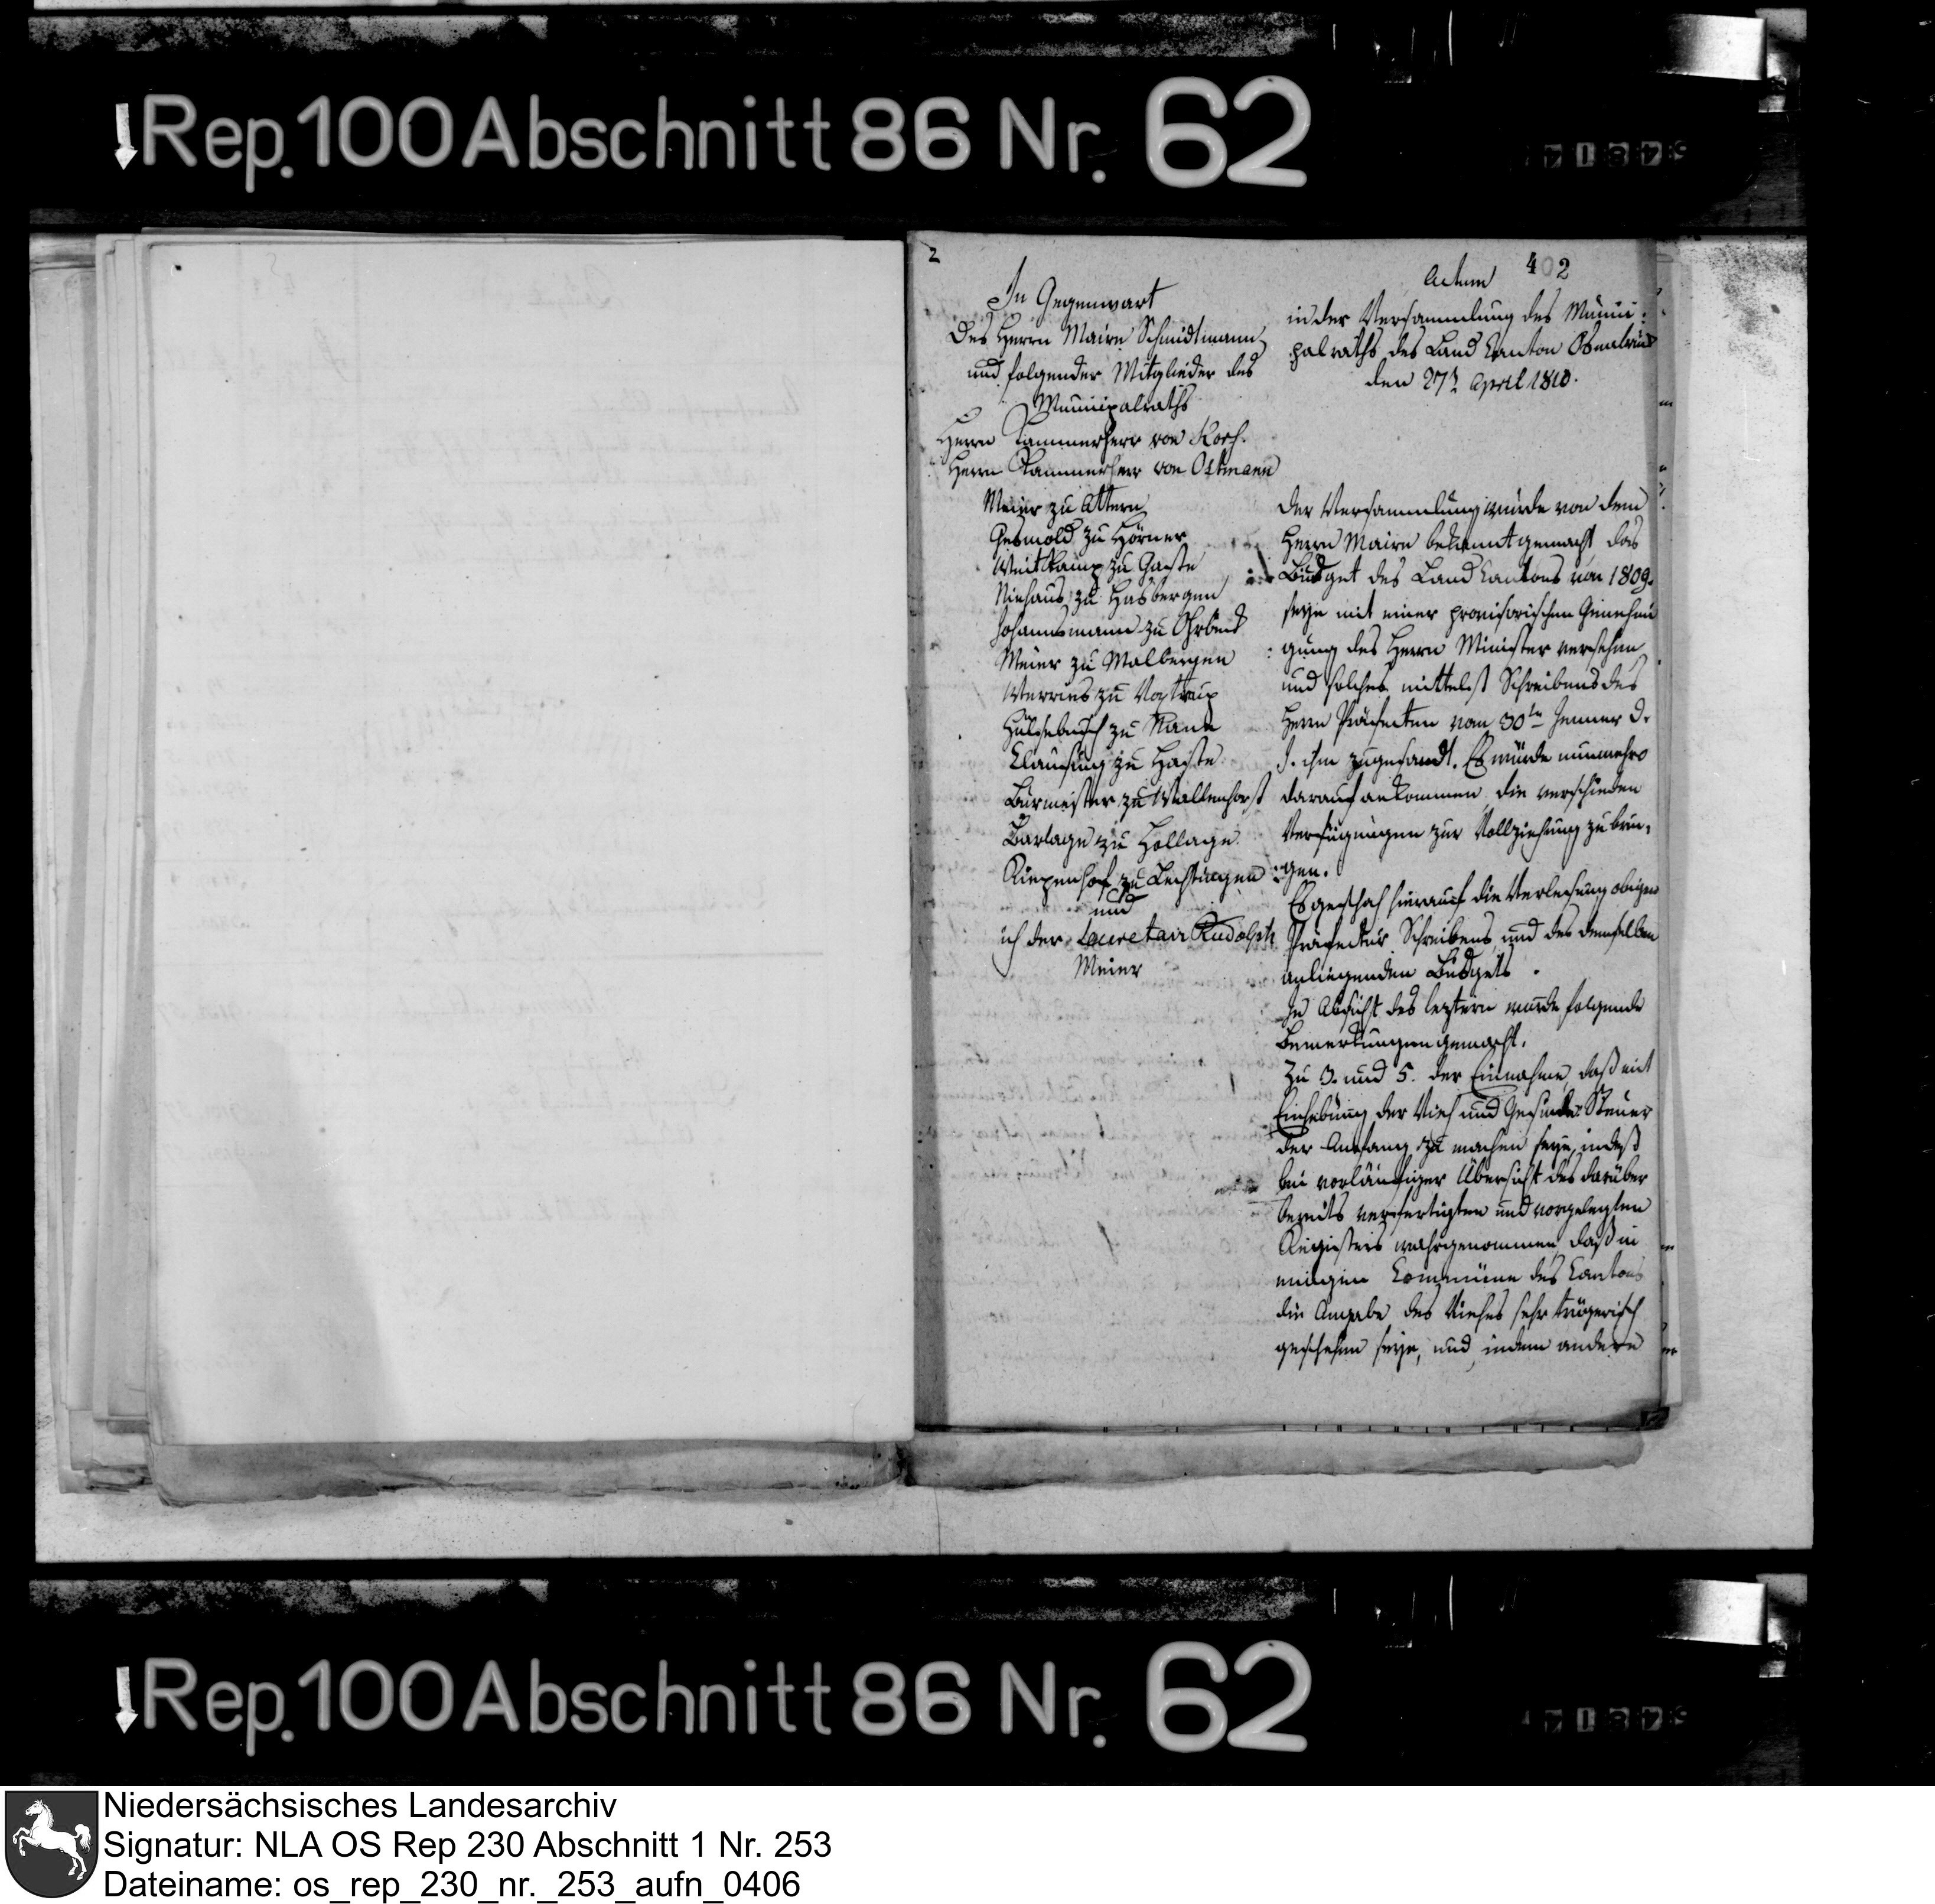 Rep. 100 Abschnitt 86 Nr. 62
2
In Gegenwart
Des Herrn Maire Schmidtmann
und folgender Mitglieder des
Municipalraths
Herrn Kammerherr von Korf.
Herrn Kammerherr von Ostmann
Meier zu Attern
Gesmold zu Hörner
Weitkamp zu Gaste
Niehaus zu Hasbergen
Johannsmann zu Ohrbeck
Meier zu Malbergen
Werries zu Voxtrup
Hülsebusch zu Nane
Clausing zu Haste
Burmeister zu Wallenhorst
Barlage zu Hollage
Riepenhof zu Lechtingen
und
ich der Secretair Rudolph
Meier
402
Actum
in der Versammlung des Munici:
palraths des Land Canton Osnabrück
den 27t April 1810.
Der Versammlung wurde von dem
Herrn Maire bekannt gemacht, das
Budget des Land Cantons von 1809.
seye mit einer provisorischen Genehmi
:gung des Herrn Minister versehen
und solches mittelst Schreibens des
Herrn Präfecten vom 30ten Jenner d.
J. ihm zugesandt. Es würde nunmehro
darauf ankommen, die verschieden
Verfügungen zur Vollziehung zu brin:
:gen.
Es geschah hierauf die Verlesung obigen
Präfectur Schreibens, und des demselben
anliegenden Budgets.
In Absicht des leztern wurde folgende
Bemerkungen gemacht.
Zu 3. und 5. der Einnahme, daß mit
Einhebung der Vieh und Gesinde Steuer
der Anfang zu machen seye, indeß
bei vorläufiger Übersicht des darüber
bereits verfertigten und vorgelegten
Registers wahrgenommen, daß in
einigen Commüne des Cantons
die Angabe des Viehes sehr trügerisch
geschehen seye, und, indem andere
Rep. 100 Abschnitt 86 Nr. 62
Niedersächsisches Landesarchiv
Signatur: NLA OS Rep 230 Abschnitt 1 Nr. 253
Dateiname: os_rep_230_nr._253_aufn_0406